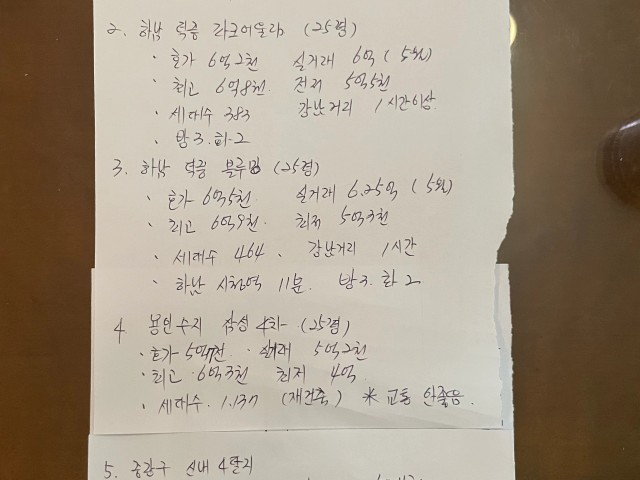 2. 하남 덕풍 라크어울림 (25평)
· 호가 6억2천 실거래 6억 (5월)
· 최고 6억8천. 최저 5억5천
· 세대수 383 강남거리 1시간이상.
· 방3. 화-2
3. 하남 덕풍 블루밍 (25평)
· 호가 6억5천. 실거래 6.25억 (5월)
· 최고 6억9천. 최저 5억3천
· 세대수 464. 강남거리 1시간
· 하남 시청역 11분. 방3. 화2
4. 용인수지 삼성 4차 (25평)
· 호가 5억7천. 실거래 5억2천
· 최고 6억3천 최저 4억.
· 세대수. 1.137 (재건축) * 교통 안좋음.
5. 중랑구 신내 4단지